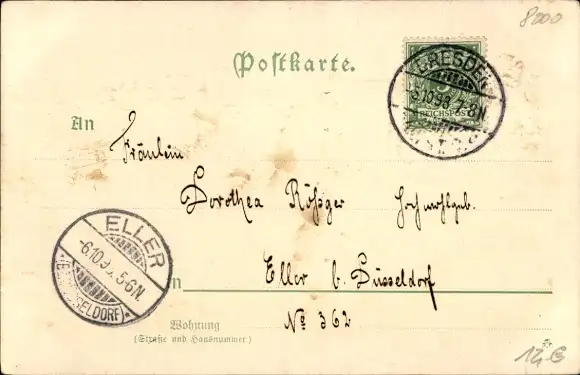 8000
Postkarte.
DRESDEN
5
REICHSPOST
10 98 7-8N
An
Fräulein
Dorothea Rößger Hochwohlgeb.
ELLER
6.10.9 5-6N.
DÜSSELDORF)
Eller b. Düsseldorf
in
No 362
Wohnung
(Straße und Hausnummer)